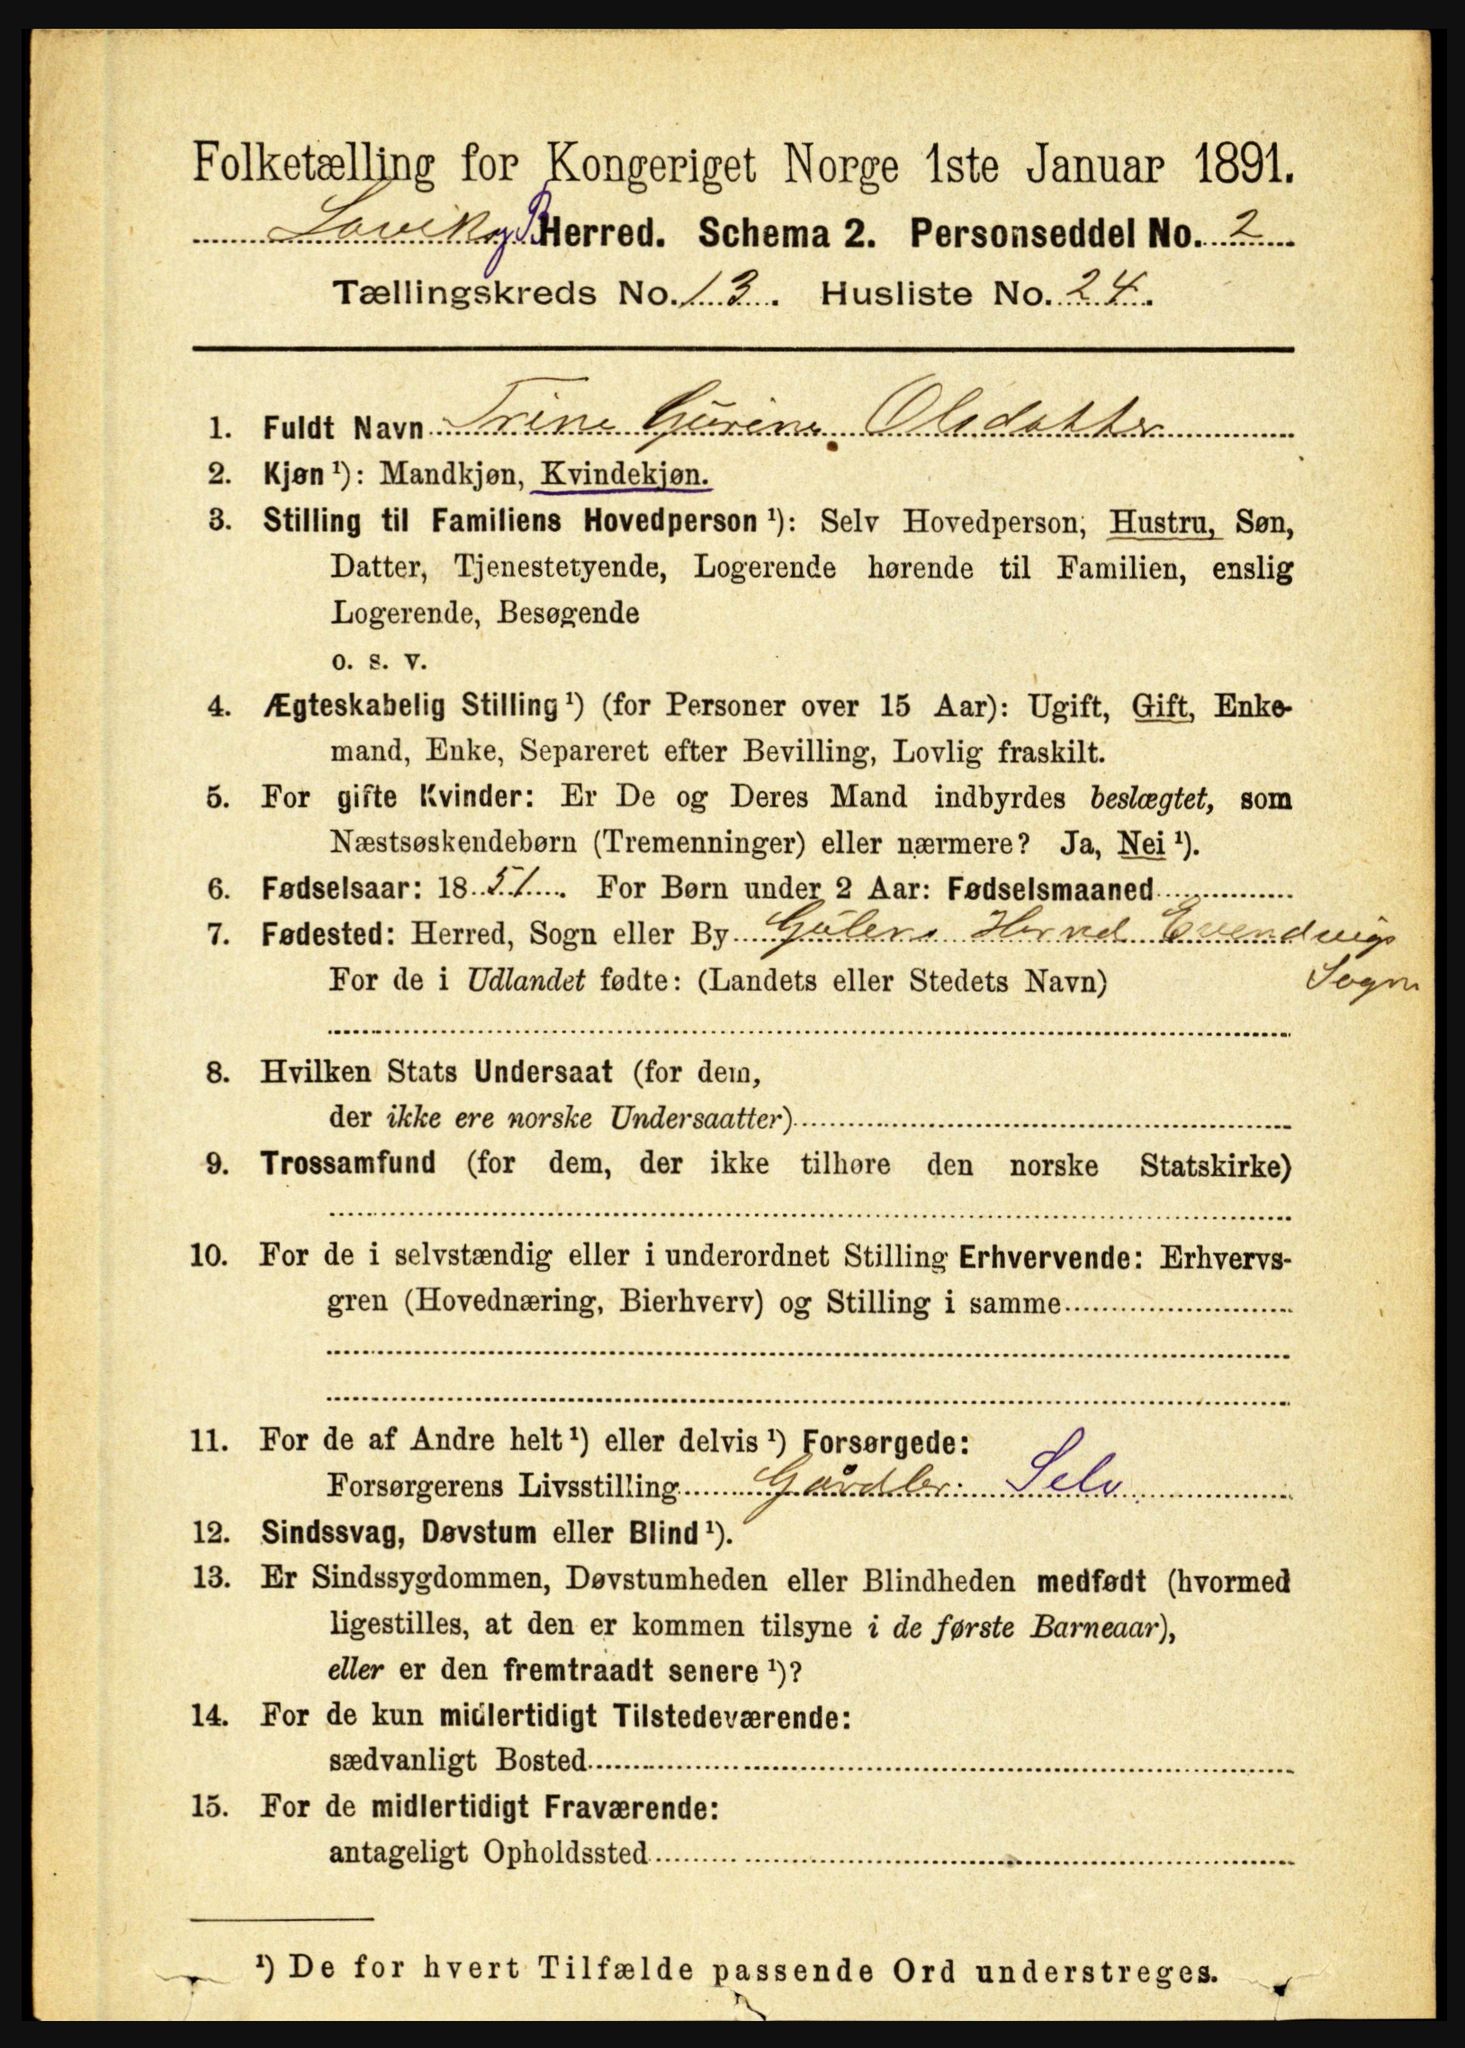 Folketælling for Kongeriget Norge 1ste Januar 1891.
Lavik og B Herred. Schema 2. Personseddel No. 2
Tællingskreds No. 13. Husliste No. 24.
1. Fuldt Navn Trine Gurine Olsdatter
2. Kjøn ¹): Mandkjøn, Kvindekjøn.
3. Stilling til Familiens Hovedperson ¹): Selv Hovedperson, Hustru, Søn,
Datter, Tjenestetyende, Logerende hørende til Familien, enslig
Logerende, Besøgende
o. s. v.
4. Ægteskabelig Stilling ¹) (for Personer over 15 Aar): Ugift, Gift, Enke-
mand, Enke, Separeret efter Bevilling, Lovlig fraskilt.
5. For gifte Kvinder: Er De og Deres Mand indbyrdes beslægtet, som
Næstsøskendebørn (Tremenninger) eller nærmere? Ja, Nei ¹).
6. Fødselsaar: 1851. For Børn under 2 Aar: Fødselsmaaned
7. Fødested: Herred, Sogn eller By Gulens Herred Evendvigs
For de i Udlandet fødte: (Landets eller Stedets Navn) Sogn
8. Hvilken Stats Undersaat (for dem,
der ikke ere norske Undersaatter)
9. Trossamfund (for dem, der ikke tilhøre den norske Statskirke)
10. For de i selvstændig eller i underordnet Stilling Erhvervende: Erhvervs-
gren (Hovednæring, Bierhverv) og Stilling i samme
11. For de af Andre helt ¹) eller delvis ¹) Forsørgede:
Forsørgerens Livsstilling Gårdbr. Selv
12. Sindssvag, Døvstum eller Blind ¹).
13. Er Sindssygdommen, Døvstumheden eller Blindheden medfødt (hvormed
ligestilles, at den er kommen tilsyne i de første Barneaar),
eller er den fremtraadt senere ¹)?
14. For de kun midlertidigt Tilstedeværende:
sædvanligt Bosted
15. For de midlertidigt Fraværende:
antageligt Opholdssted
¹) De for hvert Tilfælde passende Ord understreges.